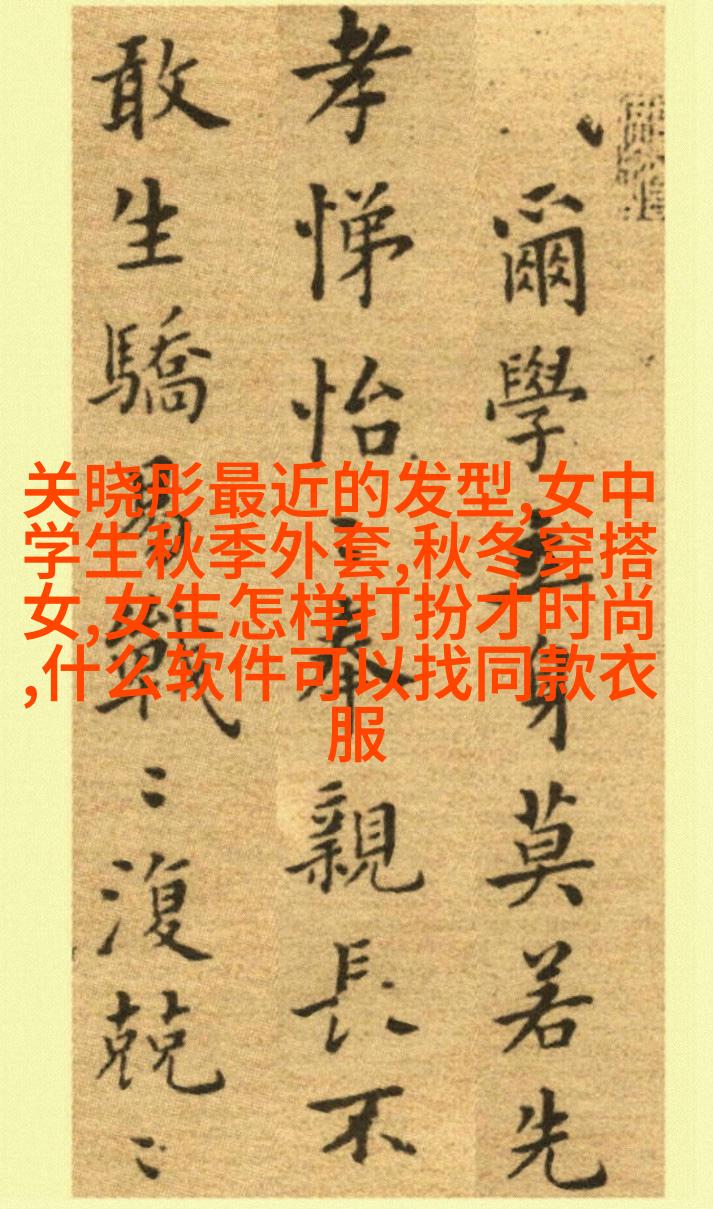 爾學立身莫若先
孝悌怡〻奉親長不
敢生驕易戰〻復兢〻
关晓彤最近的发型,女中
学生秋季外套,秋冬穿搭
女,女生怎样打扮才时尚
,什么软件可以找同款衣
服